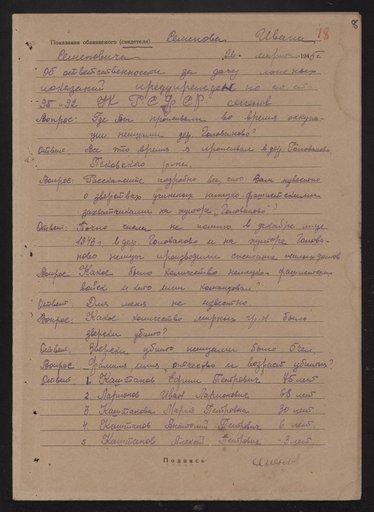 8
18
Показания обвиняемого (свидетеля) Семенова Ивана
Семеновича
26 марта 1945 г.
Об ответственности за дачу ложных
показаний предупрежден по ст. ст.
95-92 УК РСФСР Семенов
Вопрос: Где Вы проживали во время оккупа-
ции немцами дер. Голованово?
Ответ: Все это время я проживал в дер. Голованово
Псковского р-на.
Вопрос: Расскажите подробно все, что Вам известно
о зверствах учиненных немецко-фашистскими
захватчиками на хуторе "Голованово"?
Ответ: Точно числа не помню в декабре м-це
1943 г. в дер. Голованово и на хуторе Голова-
ново немцы производили сжигание жилых домов
Вопрос: Какое было количество немецко-фашистских
войск и кто ими командовал?
Ответ: Для меня не известно.
Вопрос: Какое количество мирных гр-н было
зверски убито?
Ответ: Зверски убито немцами было чел.
Вопрос: Фамилия имя, отчество и возраст убитых?
Ответ: 1. Каштанов Ефим Петрович 45 лет
2. Ларионов Иван Ларионович 68 лет
3. Каштанова Мария Петровна 30 лет
4. Каштанов Анатолий Петрович 6 лет.
5. Каштанов Петрович - 3 лет.
Подпись